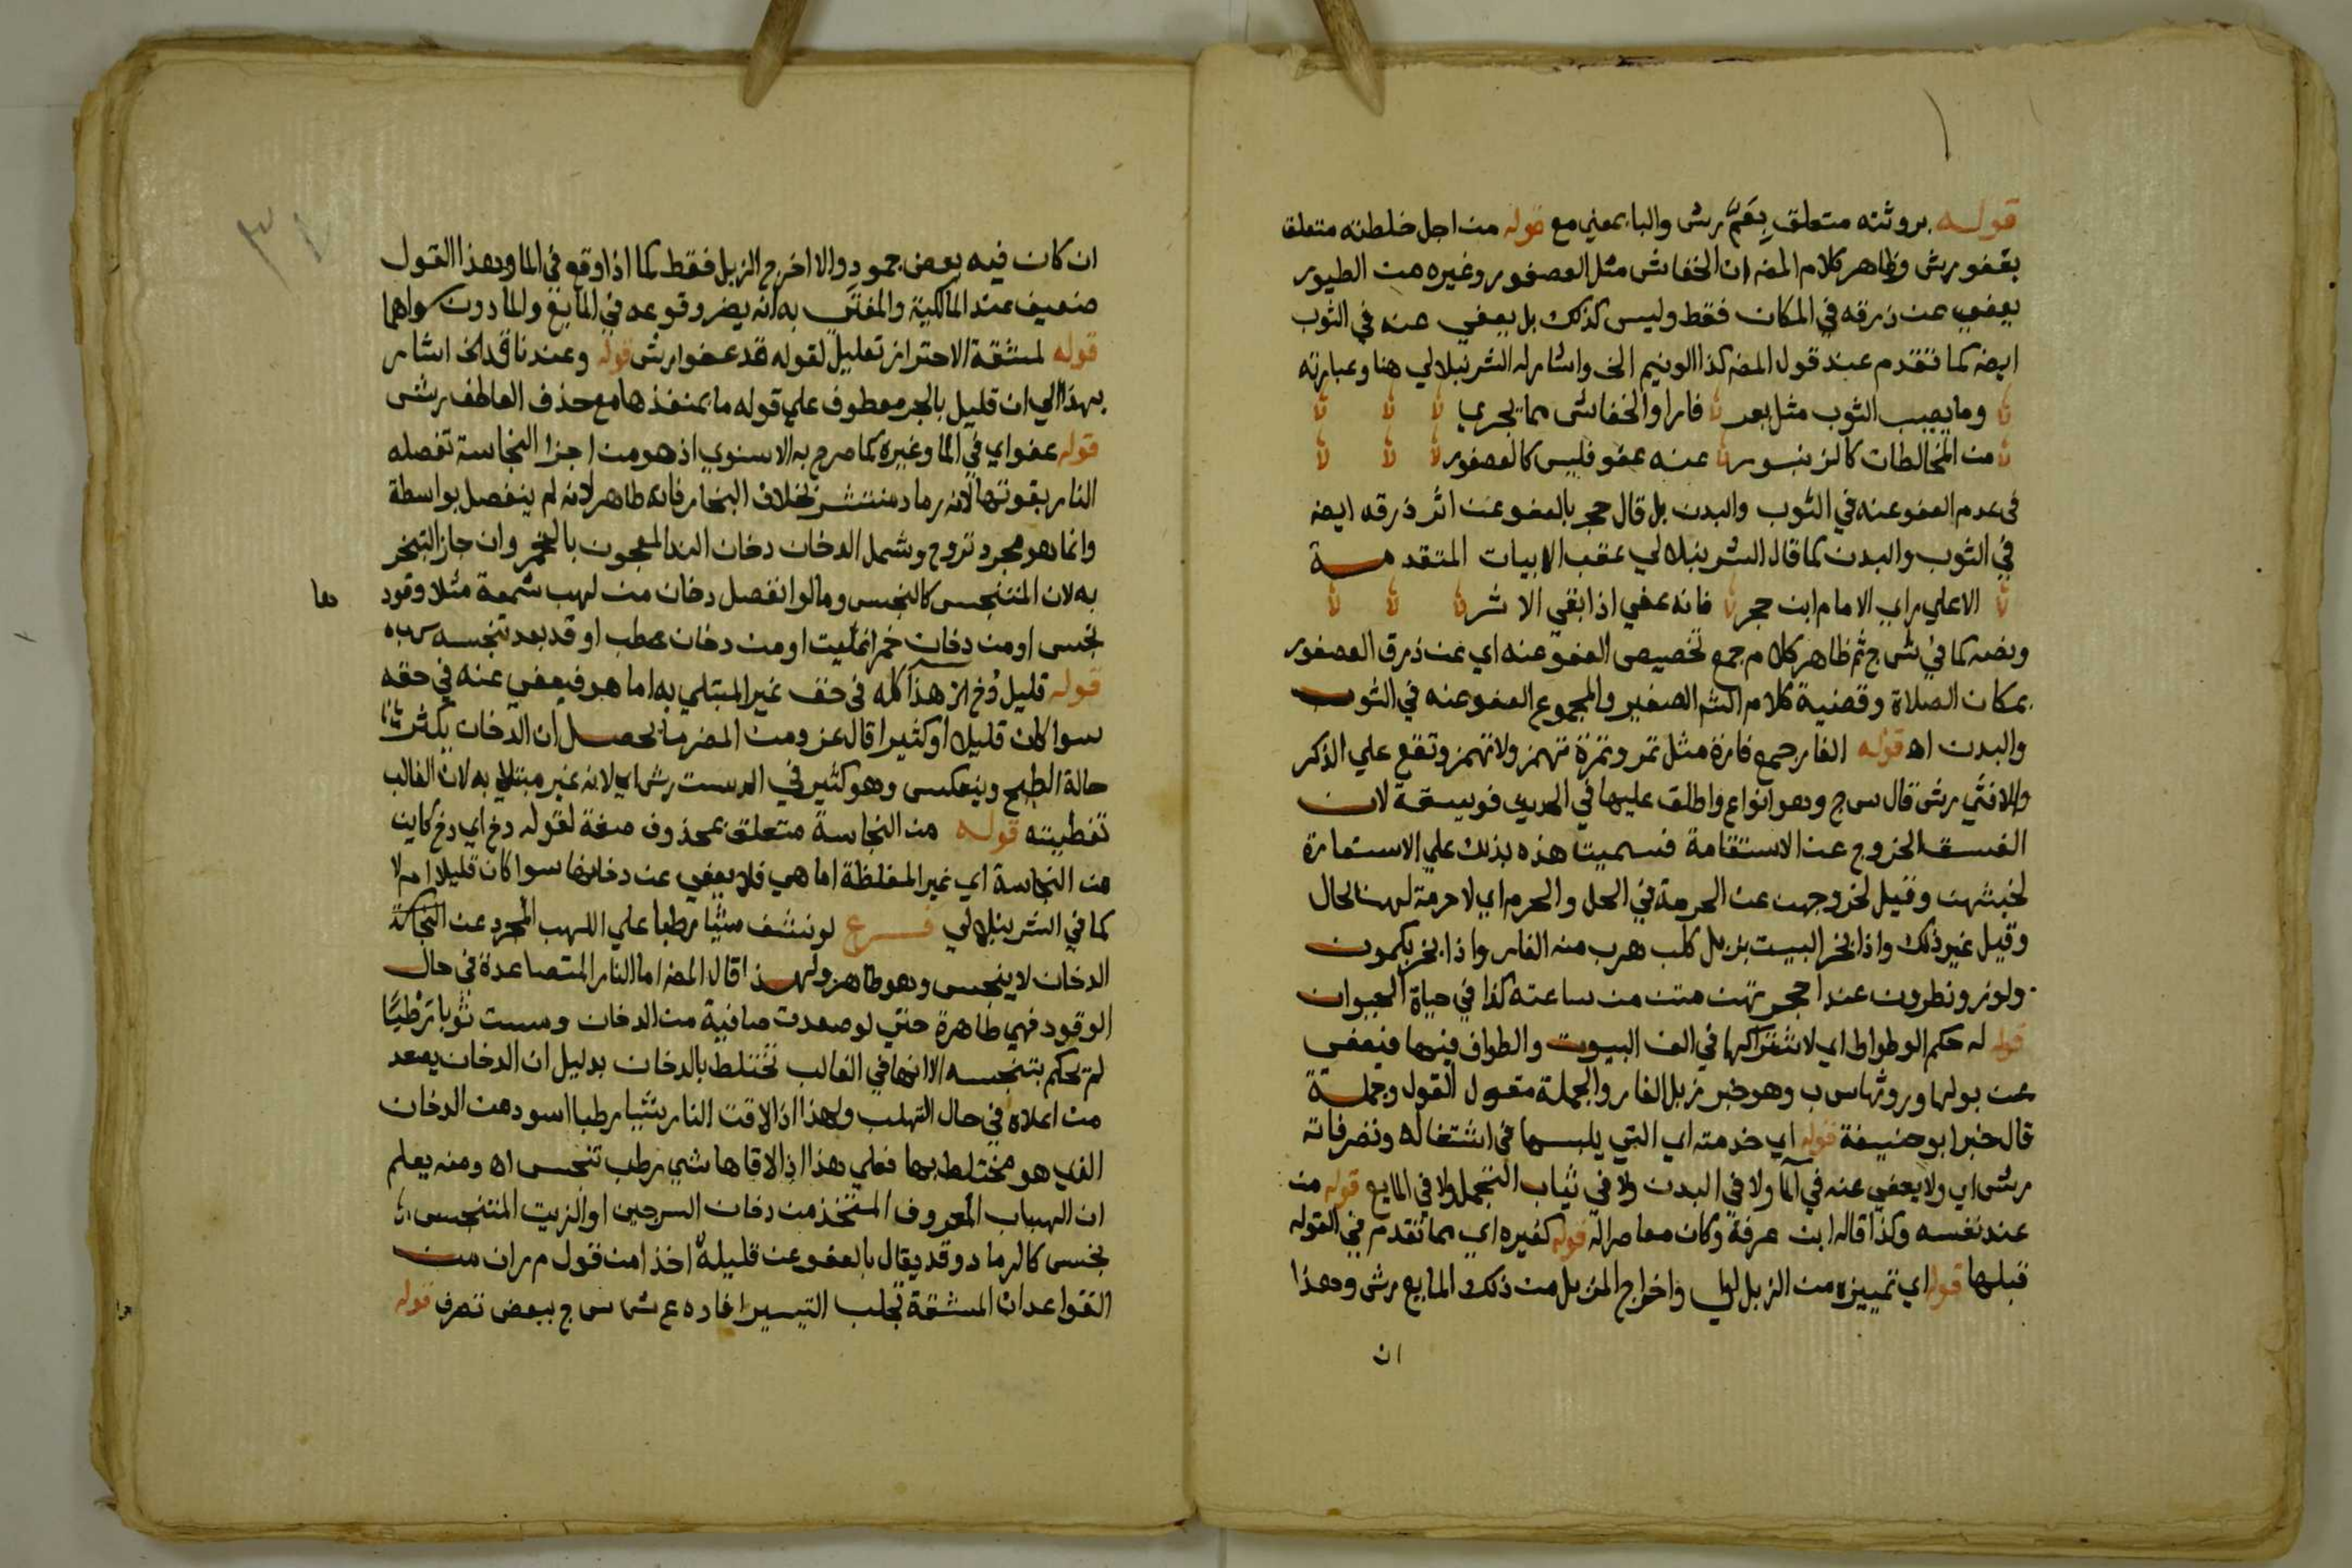 قوله بروثته متعلق بعَمَّ رش والبا بمعني مع قوله من اجل خلطته متعلق
بقفو رش وظاهر كلام المضه ان الخفاش مثل العصفور وغيره من الطيور
يعفي عن ذرقه في المكان فقط وليس كذلك بل يعفي عنه في الثوب
ايضه كما تقدم عند قول المضه كذا الونيم الخ واشار له الشرنبلالي هنا وعبارته
وما يصيب الثوب مثل بعر فار او الخفاش مما يجري
من المخالطات كالزنبور عنه عفو فليس كالعصفور
في عدم العفو عنه في الثوب والبدن بل قال حجر بالعفو عن اثر ذرقه ايضه
في الثوب والبدن كما قال الشرنبلالي عقب الابيات المتقدمة
الا علي راي الامام ابن حجر فانه عفي اذا بقي الاثر
ونصه كما في ش ج ثم ظاهر كلام جمع تخصيص العفو عنه اي عن ذرق العصفور
بمكان الصلاة وقضية كلام الشم الصغير والمجموع العفو عنه في الثوب
والبدن اه قوله الفار جمع فارة مثل تمر وتمرة تهمز ولا تهمز وتقع علي الذكر
والانثي رش قال س ج وهو انواع واطلق عليها في الحديث فويسقة لان
الفسق الخروج عن الاستقامة فسميت هذه بذلك علي الاستعارة
لخبثهن وقيل لخروجهن عن الحرمة في الحل والحرم اي لا حرمة لهن بحال
وقيل غير ذلك واذا بخر البيت بزبل كلب هرب منه الفار واذا بخر بكمون
ولوز ونطرون عند احجرتهن متن من ساعته كذا في حياة الحيوان
قوله له حكم الوطواط اي لاشتراكها في الف البيوت والطواف فيها فيعفي
عن بولها وروثها س ب وهو خبر زبل الفار والجملة مقول القول وجملة
قال خبر ابو حنيفة قوله اي خدمته اي التي يلبسها في اشتغاله وتصرفاته
رش اي ولا يعفي عنه في الما ولا في البدن ولا في ثياب التجمل ولا في المايع قوله من
عند نفسه وكذا قاله ابن عرفة وكان معاصرا له قوله كغيره اي مما تقدم في القوله
قبلها قوله اي تمييزه من الزبل اي واخراج الزبل من ذلك المايع رش وهذا
ان
ان كان فيه بعض جمود والا اخرج الزبل فقط كما اذا وقع في الما وهذا القول
ضعيف عند المالكية والمفتي به انه يضر وقوعه في المايع والما دون سواهما
قوله لمشقة الاحتراز تعليل لقوله قد عفوا رش قوله وعندنا قد الخ اشار
بهذا الي ان قليل بالجر معطوف علي قوله ما بمنفذها مع حذف العاطف رش
قوله عفو اي في الما وغيره كما صرح به الاسنوي اذ هو من اجزا النجاسة تفصله
النار بقوتها لانه رماد منتشر بخلاف البخار فانه طاهر لانه لم ينفصل بواسطة
وانما هو مجرد تروح وشمل الدخان دخان الند المعجون بالخمر وان جاز التبخر
به لان المتنجس كالنجس وما لو انفصل دخان من لهب شمعة مثلا وقود
نجس او من دخان خمر اغليت او من دخان حطب اوقد بعد تنجسه س ب
قوله قليل دُخ الخ هذا كله في حق غير المبتلي به اما هو فيعفي عنه في حقه
سوا كان قليلا او كثيرا قال عز ومن المضر ما يحصل ان الدخان يكثر
حالة الطبخ وينعكس وهو كثير في الدست رش اي لانه غير مبتلي به لان الغالب
تغطيته قوله من النجاسة متعلق بمحذوف صفة لقوله دخ اي دخ كاين
من النجاسة اي غير المغلظة اما هي فلا يعفي عن دخانها سوا كان قليلا ام لا
كما في الشرنبلالي فرع لو نشف شيا رطبا علي اللهب المجرد عن النجاسة
الدخان لا ينجس وهو طاهر ولهذا قال المضه اما النار المتصاعدة في حال
الوقود فهي طاهرة حتي لو صعدت صافية من الدخان ومست ثوبا رَطْبًا
لم يحكم بتنجسه الا انها في الغالب تختلط بالدخان بدليل ان الدخان يصعد
من اعلاه في حال التهلب ولهذا اذا لاقت النار شيا رطبا اسود من الدخان
الذي هو مختلط بها فعلي هذا اذا لاقاها شي رطب تنجس اه ومنه يعلم
ان الهباب المعروف المتخذ من دخان السرجين او الزيت المتنجس
نجس كالرماد وقد يقال بالعفو عن قليله اخذا من قول م ر ان من
القواعد ان المشقة تجلب التيسير افاده ع ش س ج ببعض تصرف قوله